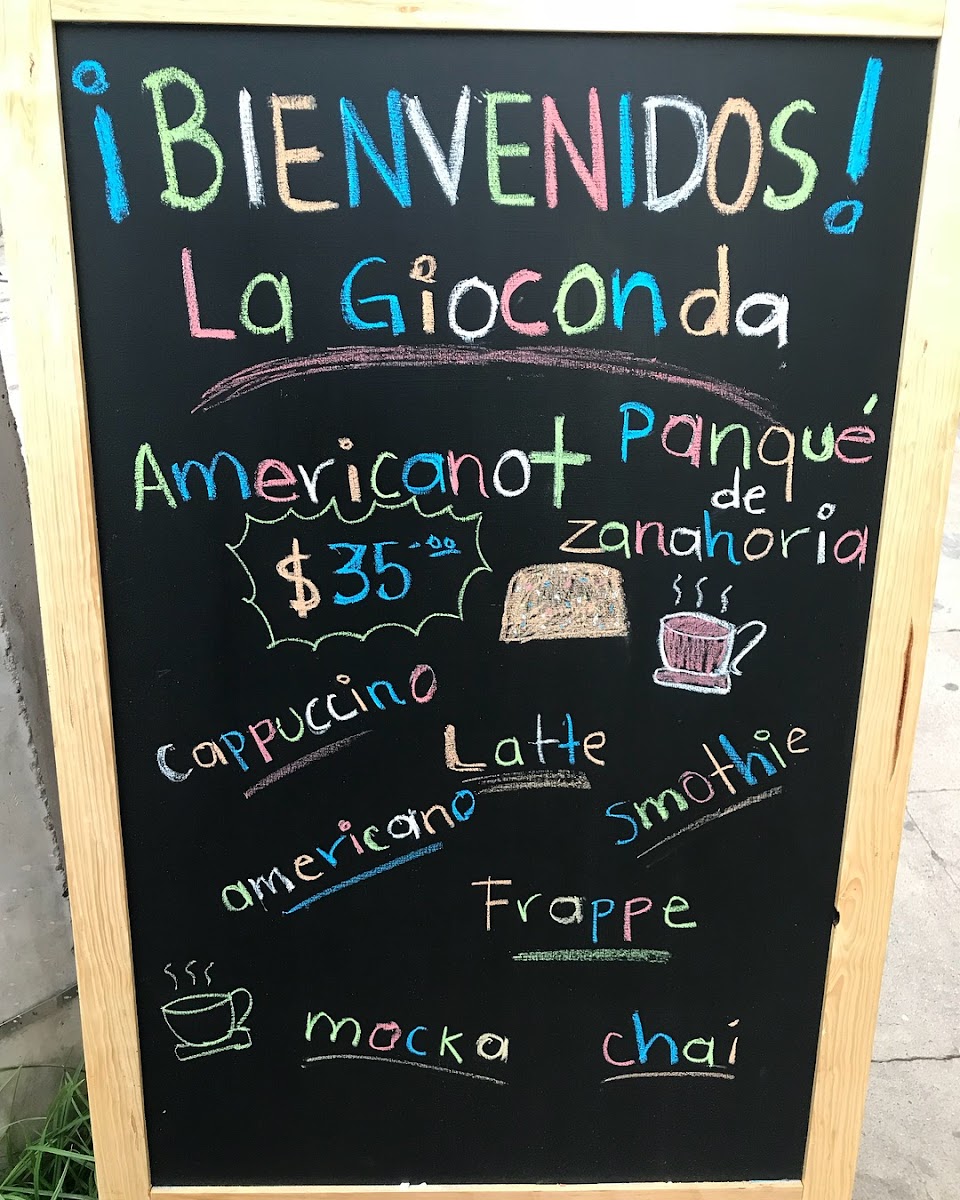 ¡BIENVENIDOS!
La Gioconda
Americano + Panqué
de
zanahoria
$35.00
cappuccino
Latte
smothie
americano
Frappe
mocka
chai